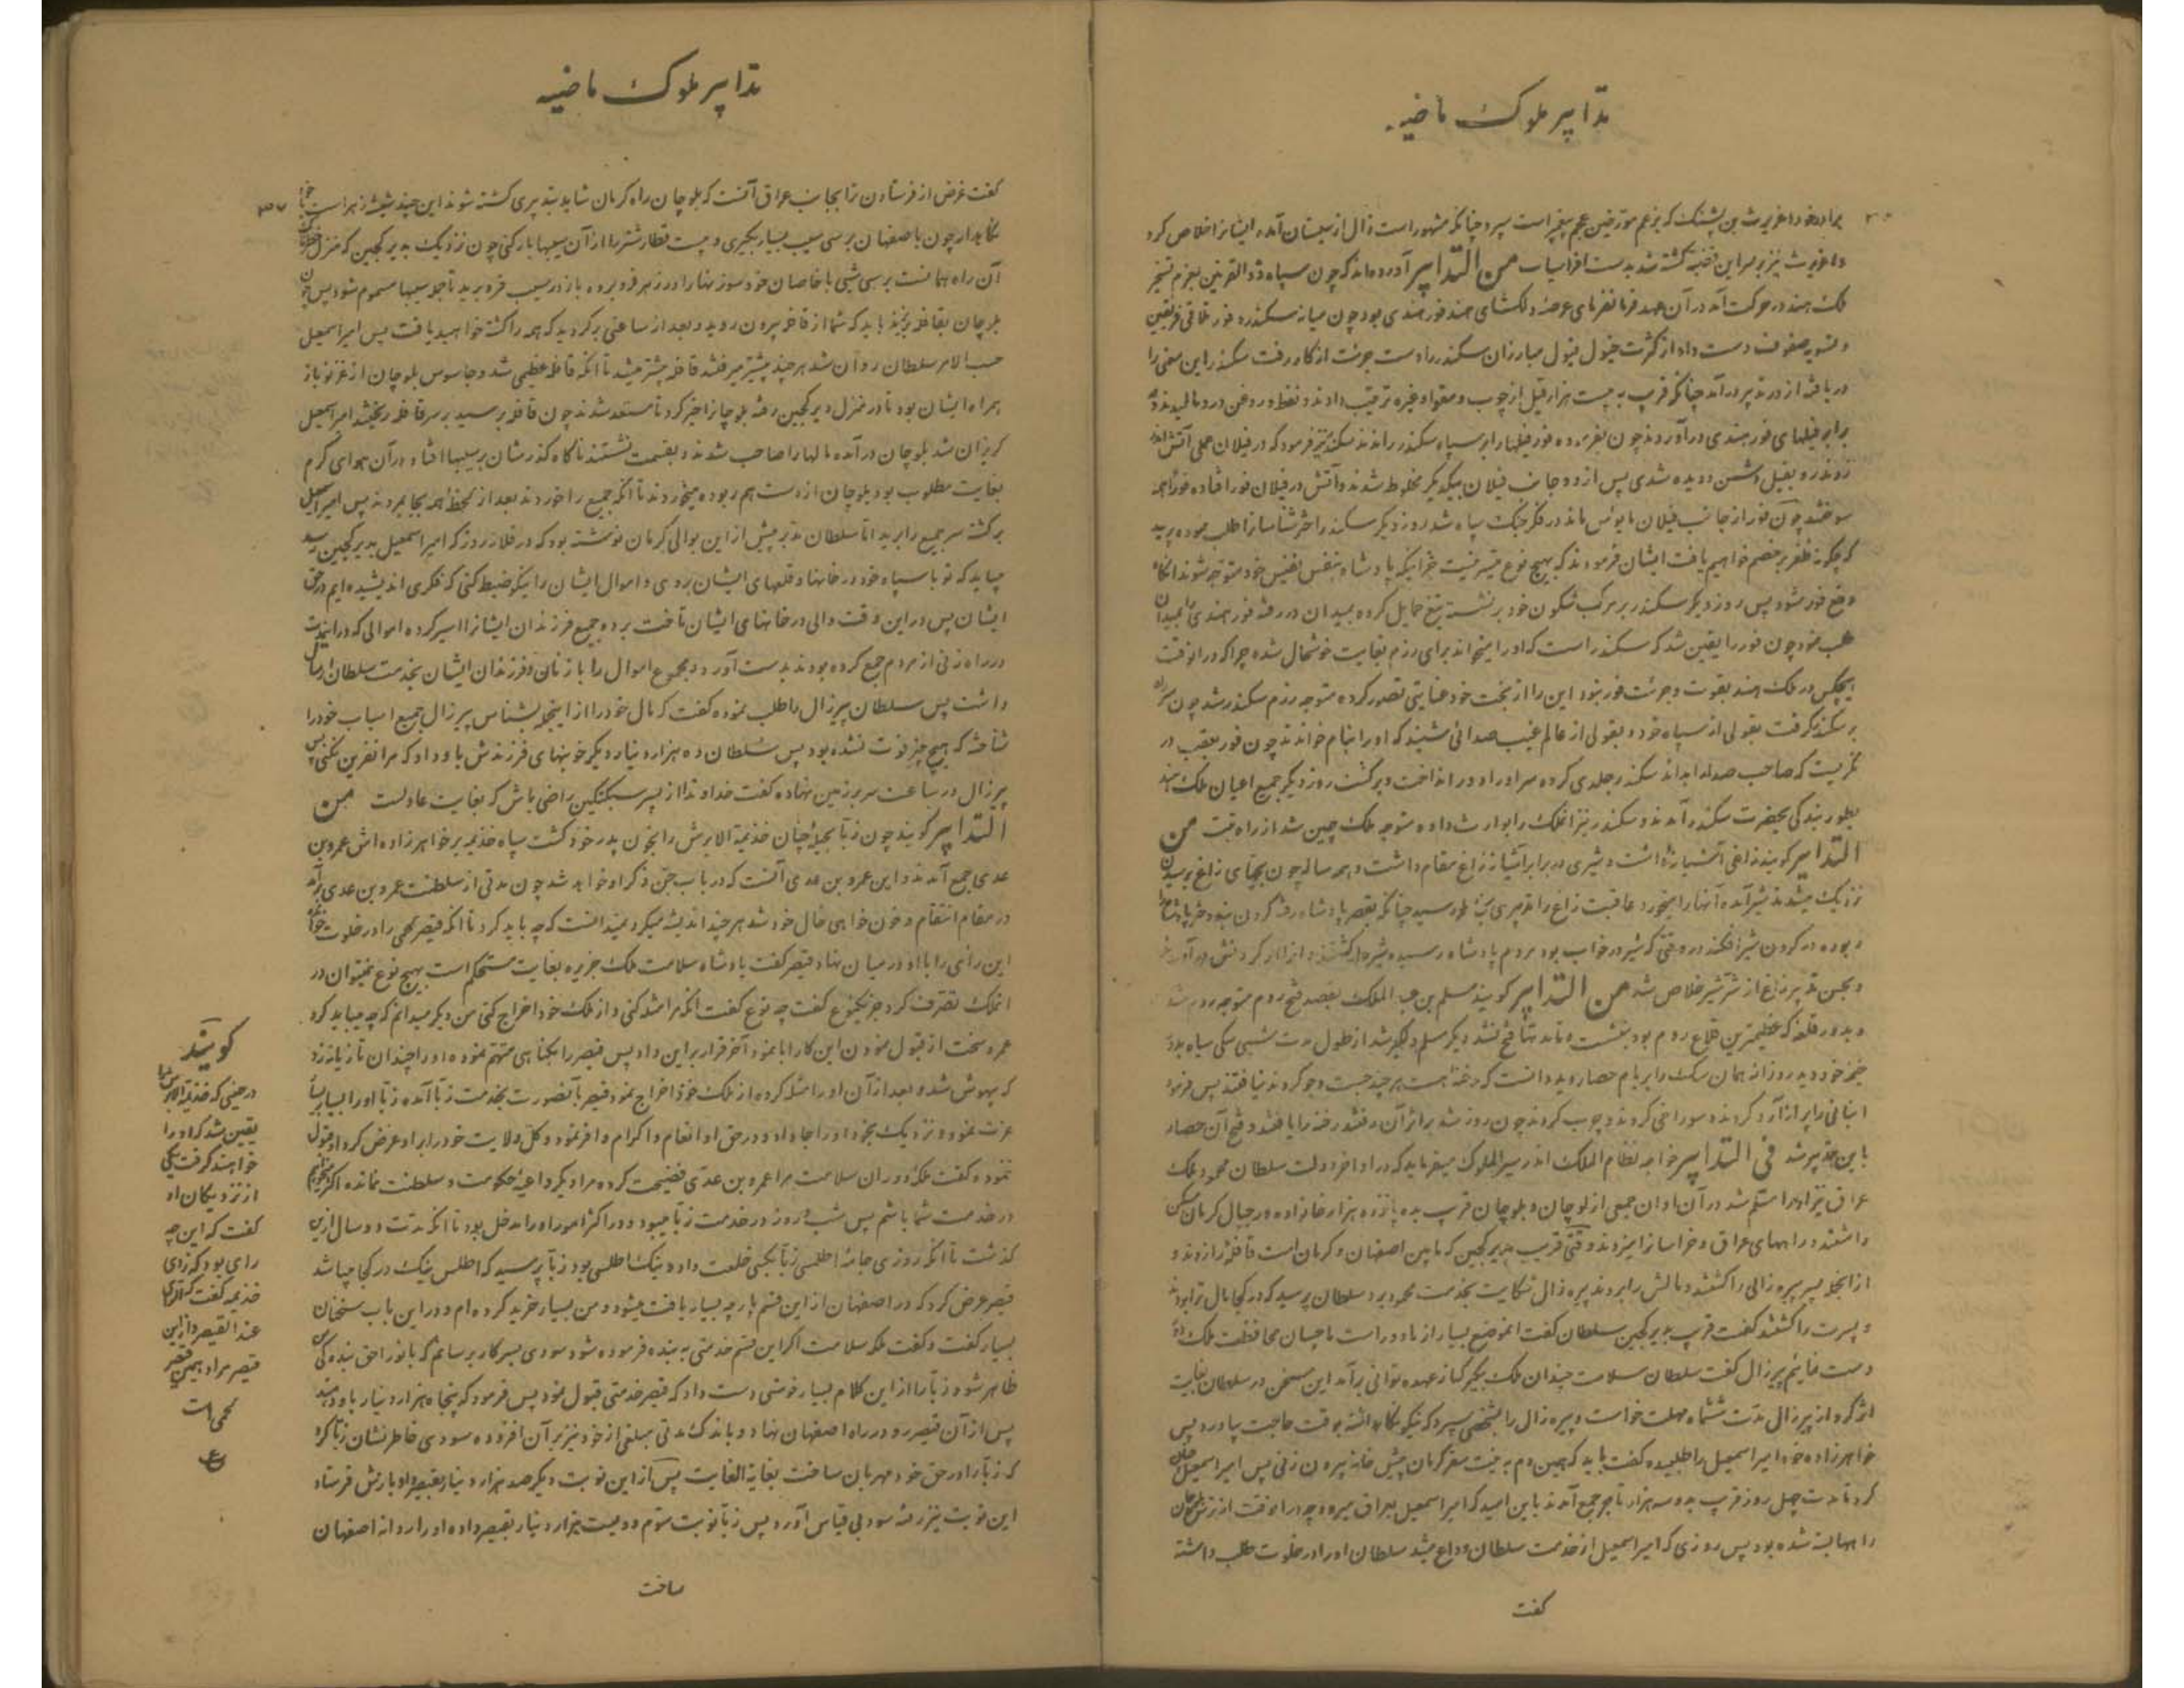 تدابیر ملوک ماضیه
برادر خود اغریرث بن پشنک که بزعم مورخین عجم پیغمبر است سپرد چنانکه مشهور است زال از سیستان آمده ایشانرا خلاص کرد
و اغریرث نیز بر سر این قضیه کشته شد بدست افراسیاب من التدابیر آورده‌اند که چون سپاه ذوالقرنین بعزم تسخیر
ملک هند در حرکت آمد در آن عهد فرمانفرمای عرصهٔ دلکشای هند فور هندی بود چون میانه سکندر و فور تلاقی فریقین
و تسویه صفوف دست داد از کثرت خیول فیول مبارزان سکندر را دست جرئت از کار رفت سکندر این معنی را
دریافته از در تدبیر درآمد چنانکه قریب به بیست هزار فیل از چوب و مقوا و غیره ترتیب دادند و نفط و روغن در و مالیدند و
برابر فیلهای فور هندی درآوردند چون بفرموده فور فیلها را بر سپاه سکندر راندند سکندر نیز فرمود که در فیلان عملی آتش
زدند رو بفیل دشمن دویده شدی پس از دو جانب فیلان بیکدیکر مخلوط شدند و آتش در فیلان فور افتاده فورا همه
سوختند چون فور از جانب فیلان مایوس ماند در فکر جنک سپاه شد روز دیکر سکندر اخترشناسانرا طلب نموده پرسید
که چکونه ظفر بر خصم خواهیم یافت ایشان فرمودند که بهیچ نوع میسر نیست جز اینکه پادشاه بنفس نفیس خود متوجه شوند آنکاه
دفع فور شود پس روز دیکر سکندر بر مرکب شکون خود برنشسته تیغ حمایل کرده بمیدان در رفته فور هندی را بمیدان
طلب نمود چون فور را یقین شد که سکندر است که او را میخواند برای رزم بغایت خوشحال شده چرا که در آنوقت
هیچکس در ملک هند بقوت و جرئت فور نبود این را از بخت خود عنایتی تصور کرده متوجه رزم سکندر شد چون سر راه
بر سکندر کرفت بقولی از سپاه خود و بقولی از عالم غیب صدائی شنید که او را بنام خواندند چون فور بعقب در
نکریست که صاحب صدا را بداند سکندر جلدی کرده سر او را دور انداخت و برکشت روز دیکر جمیع اعیان ملک هند
بطور بندکی بحضرت سکندر آمدند و سکندر نیز آنملک را بوارث داده متوجه ملک چین شد از راه تبت من
التدابیر کویند زاغی آشیانه داشت و شیری در برابر آشیانه زاغ مقام داشت و همه ساله چون بچهای زاغ بپریدن
نزدیک میشدند شیر آمده آنها را میخورد عاقبت زاغ را تدبیری بخاطر رسید چنانکه بقصر پادشاه رفته کردن بند دختر پادشاه را
ربوده در کردن شیر افکند در وقتی که شیر در خواب بود مردم پادشاه رسیده شیر را کشتند و از آن کردنش درآوردند
و بحسن تدبیر زاغ از شر شیر خلاص شد من التدابیر کویند مسلم بن عبد الملک بقصد فتح روم متوجه روم شد
و بدور قلعه که عظیمترین قلاع روم بود بنشست و تا مدتها فتح نشد دیکر مسلم دلکیر شد از طول مدت شبی سکی سیاه بدور
خیمه خود دید روز از همان سک را بر بام حصار دید دانست که رخنه هست هر چند جست و جو کردند نیافتند پس فرمود
انبانی را پر از آرد کردند و سوراخی کردند و چرب کردند چون روز شد بر اثر آن رفتند رخنه را یافتند و فتح آن حصار
باین تدبیر شد فی التدابیر خواجه نظام الملک اندر سیر الملوک میفرماید که در اواخر دولت سلطان محمود ملک
عراق نیز او را مسلم شد در آن اوان جمعی از کوچان و بلوچان قریب به ده پانزده هزار خانواده در جبال کرمان مسکن
داشتند و راههای عراق و خراسانرا میزدند وقتی قریب بدیر کجین که مابین اصفهان و کرمان است قافله را زدند و
از آنجمله پسر پیره زالی را کشتند و مالش را بردند پیره زال شکایت بخدمت محمود برد سلطان پرسید که در کجا مال ترا بردند
و پسرت را کشتند کفت قریب بدیر کجین سلطان کفت آنموضع بسیار از ما دور است ما چسان محافظت ملک دور
دست نمائیم پیرزال کفت سلطان سلامت چندان ملک بکیر که از عهده توانی برآمد این سخن در سلطان بغایت
اثر کرد از پیرزال مدت ششماه مهلت خواست و پیره زال را بشخصی سپرد که نیکو نکاه داشته بوقت حاجت بیاورد پس
خواهرزاده خود امیر اسمعیل را طلبیده کفت باید که همین دم به نیت سفر کرمان پیش خانه بیرون زنی پس امیر اسمعیل چنان
کرد تا مدت چهل روز قریب بدو سه هزار تاجر جمع آمدند باین امید که امیر اسمعیل بعراق میرود چه در آنوقت از ترس بلوچان
راهها بسته شده بود پس روزی که امیر اسمعیل از خدمت سلطان وداع میشد سلطان او را در خلوت طلب داشته
کفت
تدابیر ملوک ماضیه
کفت غرض از فرستادن ترا بجانب عراق آنست که بلوچان راه کرمان شاید بتدبیری کشته شوند این چند شیشه زهر است با خود
نکاهدار چون باصفهان برسی سیب بسیار بکیری و بیست قطار شتر را از آن سیبها بار کنی چون نزدیک بدیر کجین که منزل
آن راه همانست برسی شبی با خاصان خود سوزنها را در زهر فرو برده باز در سیب فرو برید تا جمله سیبها مسموم شود پس چون
بلوچان بقافله ریزند باید که شما از قافله بیرون روید و بعد از ساعتی برکردید که همه را کشته خواهید یافت پس امیر اسمعیل
حسب الامر سلطان روان شد هر چند پیشتر میرفتند قافله بیشتر میشد تا آنکه قافله عظیمی شد و جاسوس بلوچان از غزنو باز
همراه ایشان بود تا در منزل دیر کجین رفته بلوچانرا خبر کرد تا مستعد شدند چون قافله برسید بر سر قافله ریختند امیر اسمعیل
کریزان شد بلوچان درآمده مالها را صاحب شدند و بقسمت نشستند ناکاه کذرشان بر سیبها افتاد و در آن هوای کرم
بغایت مطلوب بود بلوچان از دست هم ربوده میخوردند تا آنکه جمیع را خوردند بعد از لحظه همه بجا بمردند پس امیر اسمعیل
برکشته سر جمیع را برید اما سلطان مدبر پیش از این بوالی کرمان نوشته بود که در فلان روز که امیر اسمعیل بدیر کجین رسد
میباید که تو با سپاه خود در خانها و قلعهای ایشان روی و اموال ایشان را نیکو ضبط کنی که فکری اندیشیده‌ایم در حق
ایشان پس در این وقت والی در خانهای ایشان تاخت برده جمیع فرزندان ایشانرا اسیر کرده اموالی که در اینمدت
در راه زنی از مردم جمع کرده بودند بدست آورد و مجموع اموال را با زنان و فرزندان ایشان بخدمت سلطان ارسال
داشت پس سلطان پیرزال را طلب نموده کفت که مال خود را از اینجمله بشناس پیرزال جمیع اسباب خود را
شناخته که هیچ چیز فوت نشده بود پس سلطان ده هزار دینار دیکر خونبهای فرزندش باو داد که مرا نفرین نکنی پس
پیرزال در ساعت سر بر زمین نهاده کفت خداوندا از پسر سبکتکین راضی باش که بغایت عادلست من
التدابیر کویند چون زبا بحیلهٔ چنان خذیمة الابرش را بخون پدر خود کشت سپاه خذیمه بر خواهرزاده‌اش عمرو بن
عدی جمع آمدند و این عمرو بن عدی آنست که در باب جن ذکر او خواهد شد چون مدتی از سلطنت عمرو بن عدی برآمد
در مقام انتقام و خون خواهی خال خود شد هر چند اندیشه میکرد نمیدانست که چه باید کرد تا آنکه قیصر لخمی را در خلوت خوانده
این راز را با او در میان نهاد قیصر کفت پادشاه سلامت ملک جزیره بغایت مستحکم است بهیچ نوع نمیتوان در
آنملک تصرف کرد جز بیکنوع کفت چه نوع کفت آنکه مرا مثله کنی و از ملک خود اخراج کنی من دیکر میدانم که چه میباید کرد
عمرو سخت از قبول نمودن این کار ابا نمود آخر قرار بر این داد پس قیصر را بکناهی متهم نموده او را چندان تازیانه زد
که بیهوش شد و بعد از آن او را مثله کرده از ملک خود اخراج نمود قیصر بآنصورت بخدمت زبا آمده زبا او را بسیار بسیار
عزت نمود و نزدیک بخود او را جا داد و در حق او انعام و اکرام وافر نمود و کل ولایت خود را بر او عرض کرد او قبول
ننمود و کفت ملکه دوران سلامت مرا عمرو بن عدی فضیحت کرده مرا دیکر داعیه حکومت و سلطنت نمانده اکر میخواهم
در خدمت شما باشم پس شب و روز در خدمت زبا میبود و در اکثر امور او را مدخل بود تا آنکه مدت دو سال ازین
کذشت تا آنکه روزی جامهٔ اطلسی زبا بکسی خلعت داد و نیک اطلسی بود زبا پرسید که اطلس نیک در کجا میباشد
قیصر عرض کرد که در اصفهان از این قسم پارچه بسیار یافت میشود و من بسیار خرید کرده‌ام و در این باب سخنان
بسیار کفت و کفت ملکه سلامت اکر این قسم خدمتی به بنده فرموده شود سودی بسرکار برسانم که بانو را حق بنده کی
ظاهر شود زبا را از این کلام بسیار خوشی دست داد که قیصر خدمتی قبول نمود پس فرمود که پنجاه هزار دینار باو دهید
پس از آن قیصر رو در راه اصفهان نهاد و باندک مدتی مبلغی از خود نیز بر آن افزوده سودی خاطرنشان زبا کرد
که زبا را در حق خود مهربان ساخت بغایة الغایت پس از این نوبت دیکر صد هزار دینار بقیصر داد بازش فرستاد
این نوبت نیز رفته سود بی قیاس آورد پس زبا نوبت سوم دویست هزار دینار بقیصر داده او را روانه اصفهان
ساخت
کویند
در حینی که خذیمة الابرش را
یقین شد که او را
خواهند کرفت یکی
از نزدیکان او
کفت که این چه
رای بود که زدی
خذیمه کفت که ترک الرای
عند القیصر و از این
قیصر مراد همین قیصر
لخمی است